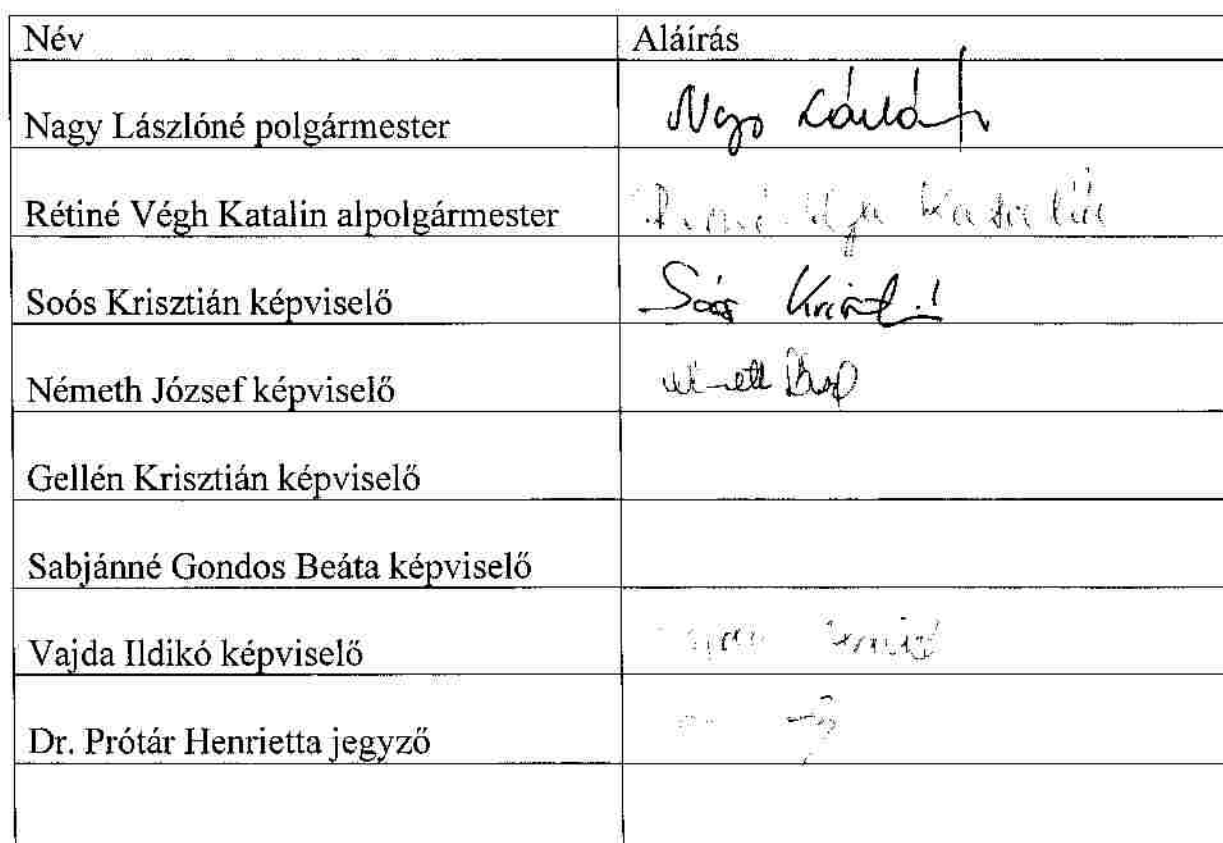 Név Aláírás
Nagy Lászlóné polgármester
Rétiné Végh Katalin alpolgármester Katalin
Soós Krisztián képviselő Soós Kriszt
Németh József képviselő
Gellén Krisztián képviselő
Sabjánné Gondos Beáta képviselő
Vajda Ildikó képviselő
Dr. Prótár Henrietta jegyző